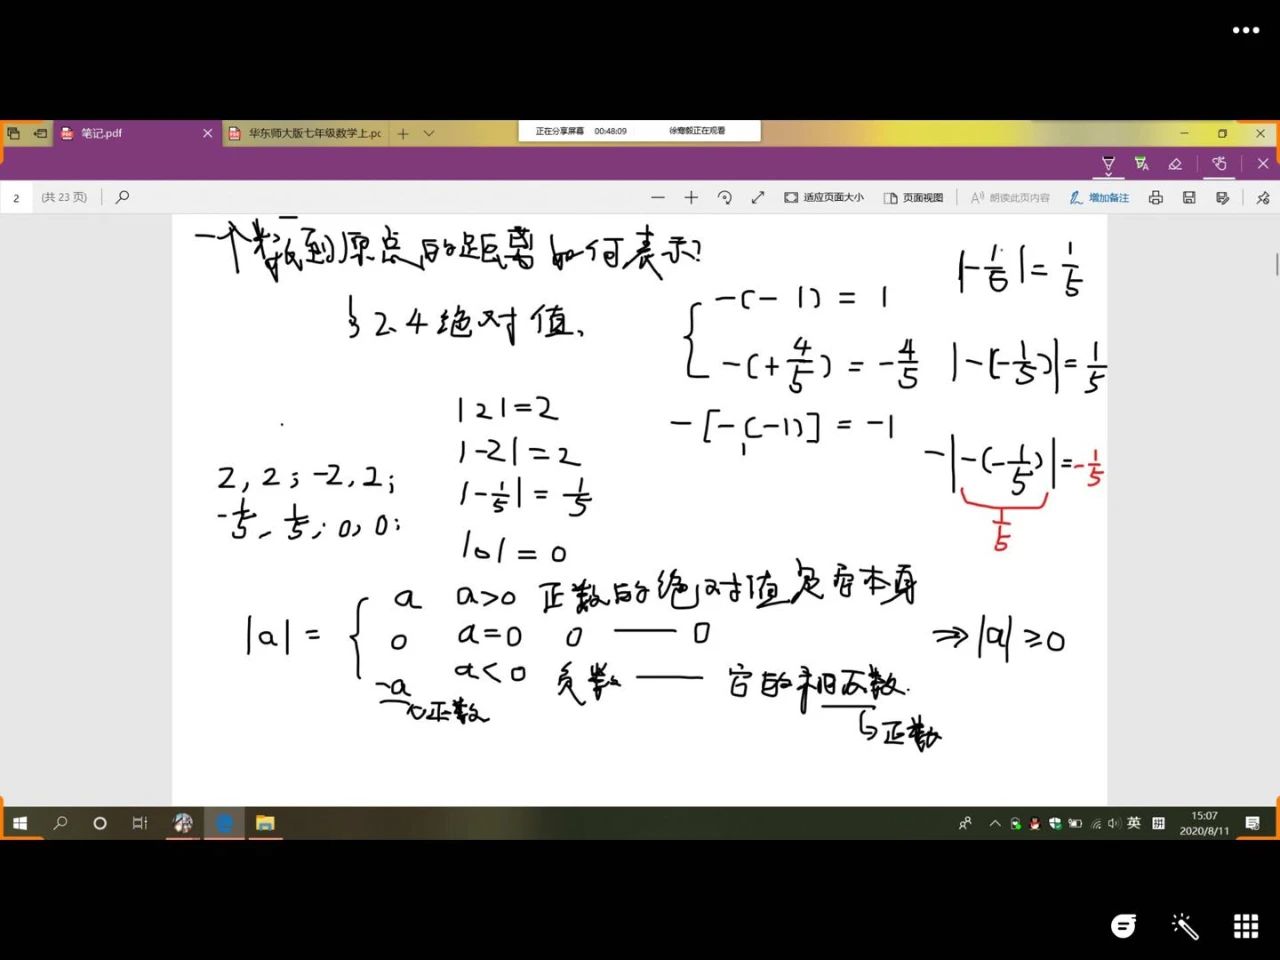 笔记.pdf
华东师大版七年级数学上.pc
正在分享屏幕 00:48:09 徐骞毅正在观看
2 (共 23 页)
适应页面大小 页面视图 朗读此页内容 增加备注
一个数到原点的距离如何表示?
§2.4 绝对值.
-(-1) = 1
-(+4/5) = -4/5
-[-(-1)] = -1
|-1/5| = 1/5
|-(-1/5)| = 1/5
-|-(-1/5)| = -1/5
1/5
|2| = 2
|-2| = 2
|-1/5| = 1/5
|0| = 0
2, 2; -2, 2;
-1/5, 1/5; 0, 0;
|a| = { a a>0 正数的绝对值是它本身
0 a=0 0 —— 0
-a a<0 负数 —— 它的相反数.
正数
正数
⇒ |a| ≥ 0
英
15:07
2020/8/11